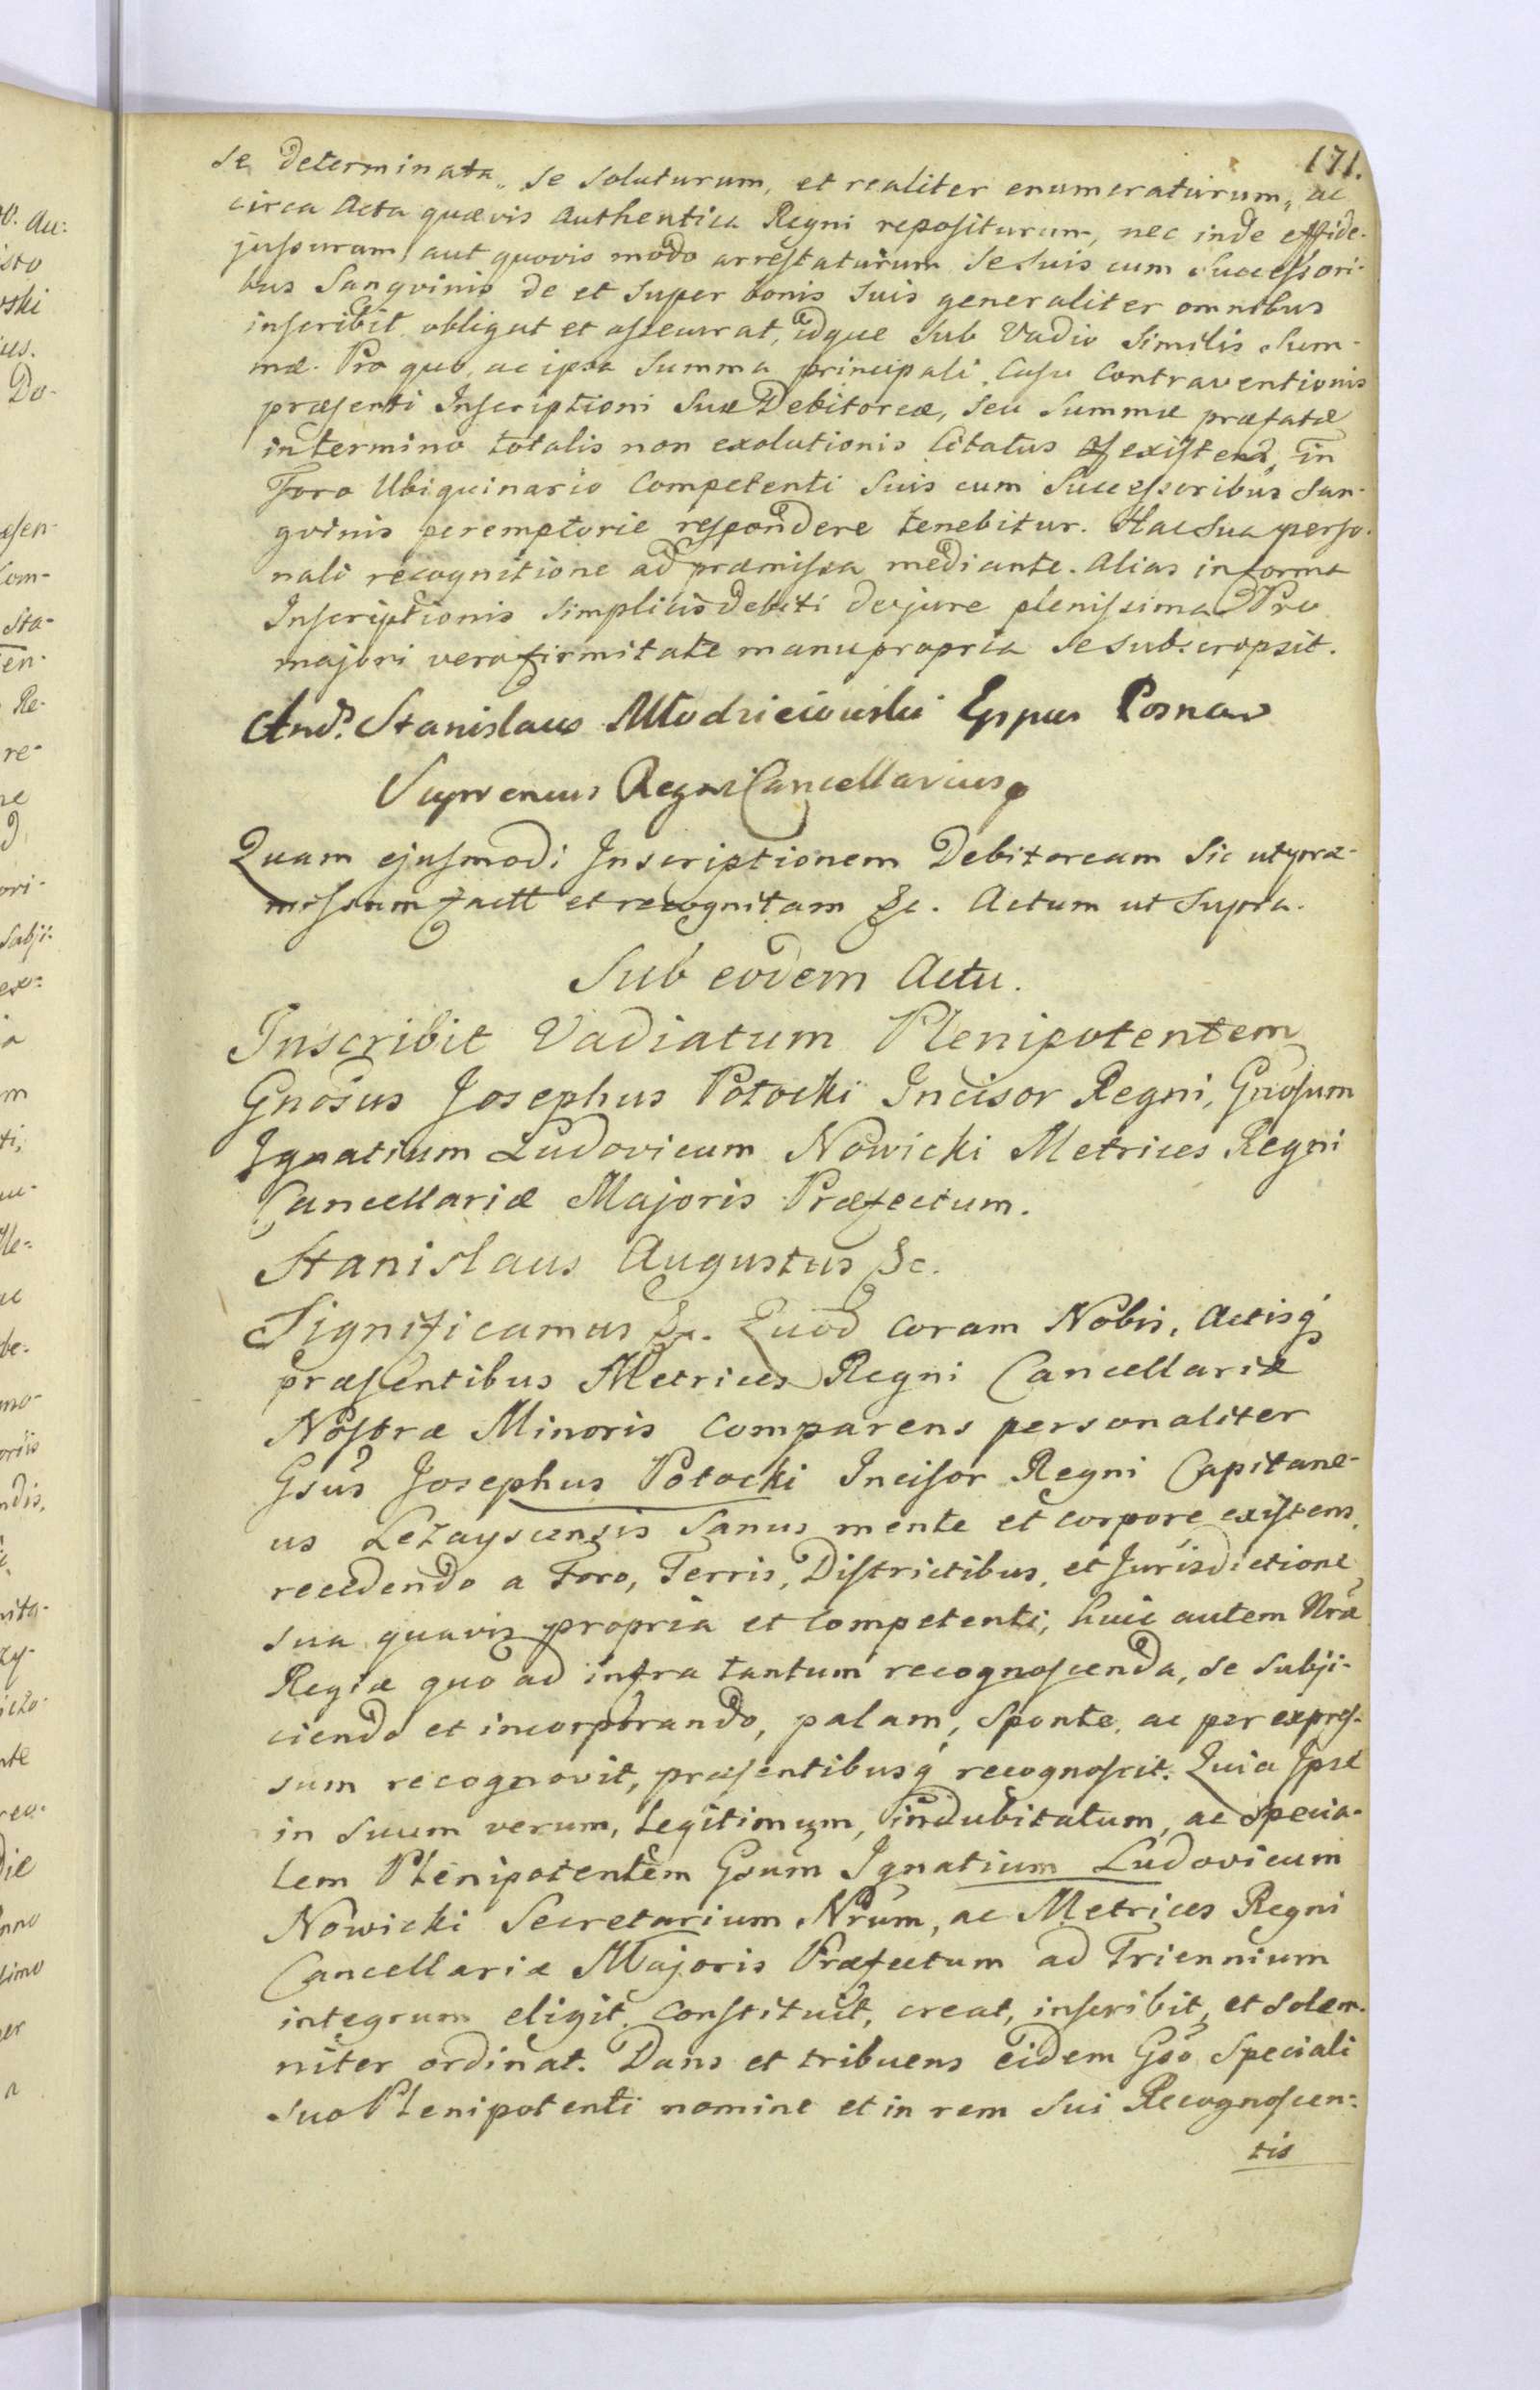 171.
se determinata, se soluturum, et realiter enumeraturum, ac
circa Acta quævis Authentica Regni repositurum, nec inde effide-
jussurum aut quovis modo arrestaturum Se Suis cum Successori-
bus Sangvinis de et Super bonis Suis generaliter omnibus
inscribit obligat et assecurat, idque Sub Vadio Similis Sum-
mæ. Pro quo, ac ipsa Summa principali Casu Contraventionis
præsenti Inscriptioni Suæ Debitoreæ, seu Summæ præfatæ
in termino totalis non exolutionis Citatus existens, in
Foro Ubiquinario Competenti Suis cum Successoribus San-
gvinis peremptorie respondere tenebitur. Hac Sua perso-
nali recognitione ad præmissa mediante. Alias in forma
Inscriptionis Simplicis debiti de jure plenissima Pro
majori vero firmitate manu propria Se subscripsit.
And. Stanislaus Młodzieiowski Eppus Posnan
Supremus Regni Cancellarius
Quam ejusmodi Inscriptionem Debitoream Sic ut præ-
missum factt et recognitam &c. Actum ut Supra.
Sub eodem Actu.
Inscribit Vadiatum Plenipotentem
Gnosus Josephus Potocki Incisor Regni, Gnosum
Ignatium Ludovicum Nowicki Metrices Regni
Cancellariæ Majoris Præfectum.
Stanislaus Augustus &c.
Significamus &c. Quod coram Nobis, Actisq
præsentibus Metrices Regni Cancellariæ
Nostræ Minoris Comparens personaliter
Gsus Josephus Potocki Incisor Regni Capitane-
us Leżayscensis Sanus mente et corpore existens,
recedendo a Foro, Terris, Districtibus, et Jurisdictione
sua quavis propria et Competenti, huic autem Nræ
Regiæ quo ad infra tantum recognoscenda, se subji-
ciendo et incorporando, palam, Sponte, ac per expres-
sum recognovit, præsentibusq recognoscit. Quia Ipse
in Suum verum, Legitimum, indubitatum, ac Specia-
lem Plenipotentem Gsum Ignatium Ludovicum
Nowicki Secretarium Nrum, ac Metrices Regni
Cancellariæ Majoris Præfectum ad Triennium
integrum eligit, Constituit, creat, inscribit, et Solem-
niter ordinat. Dans et tribuens eidem Gso Speciali
suo Plenipotenti nomine et in rem Sui Recognoscen-
tis